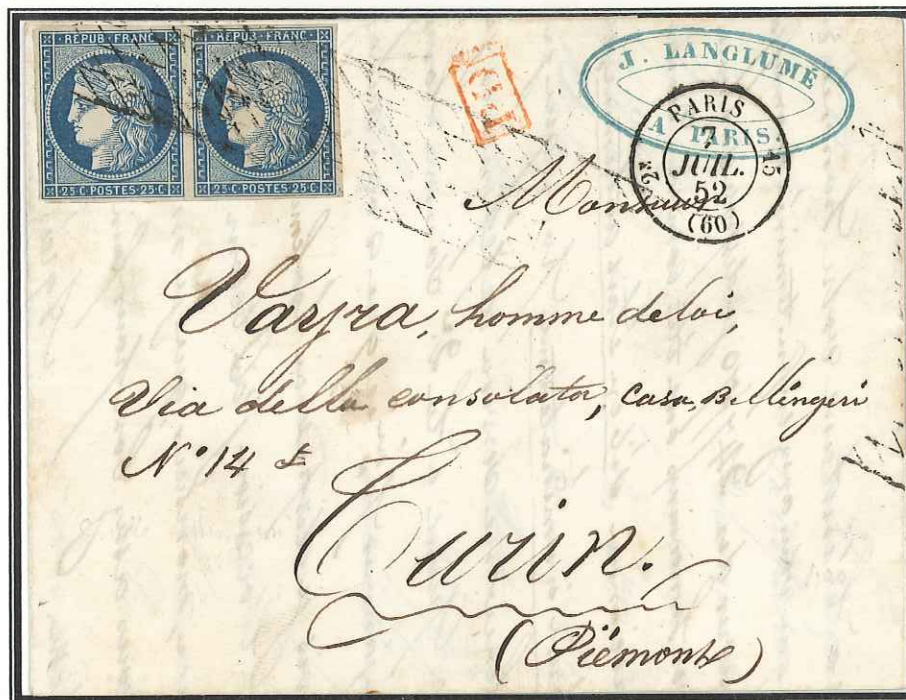 REPUB FRANC
REPUB FRANC
25 C POSTES 25 C
25 C POSTES 25 C
P.D
J. LANGLUMÉ
A PARIS
PARIS
7
JUIL.
52
(60)
15
Monsieur
Vayra, homme de loi,
Via della consolata, casa Bellingeri
N° 14
Turin.
(Piémont)